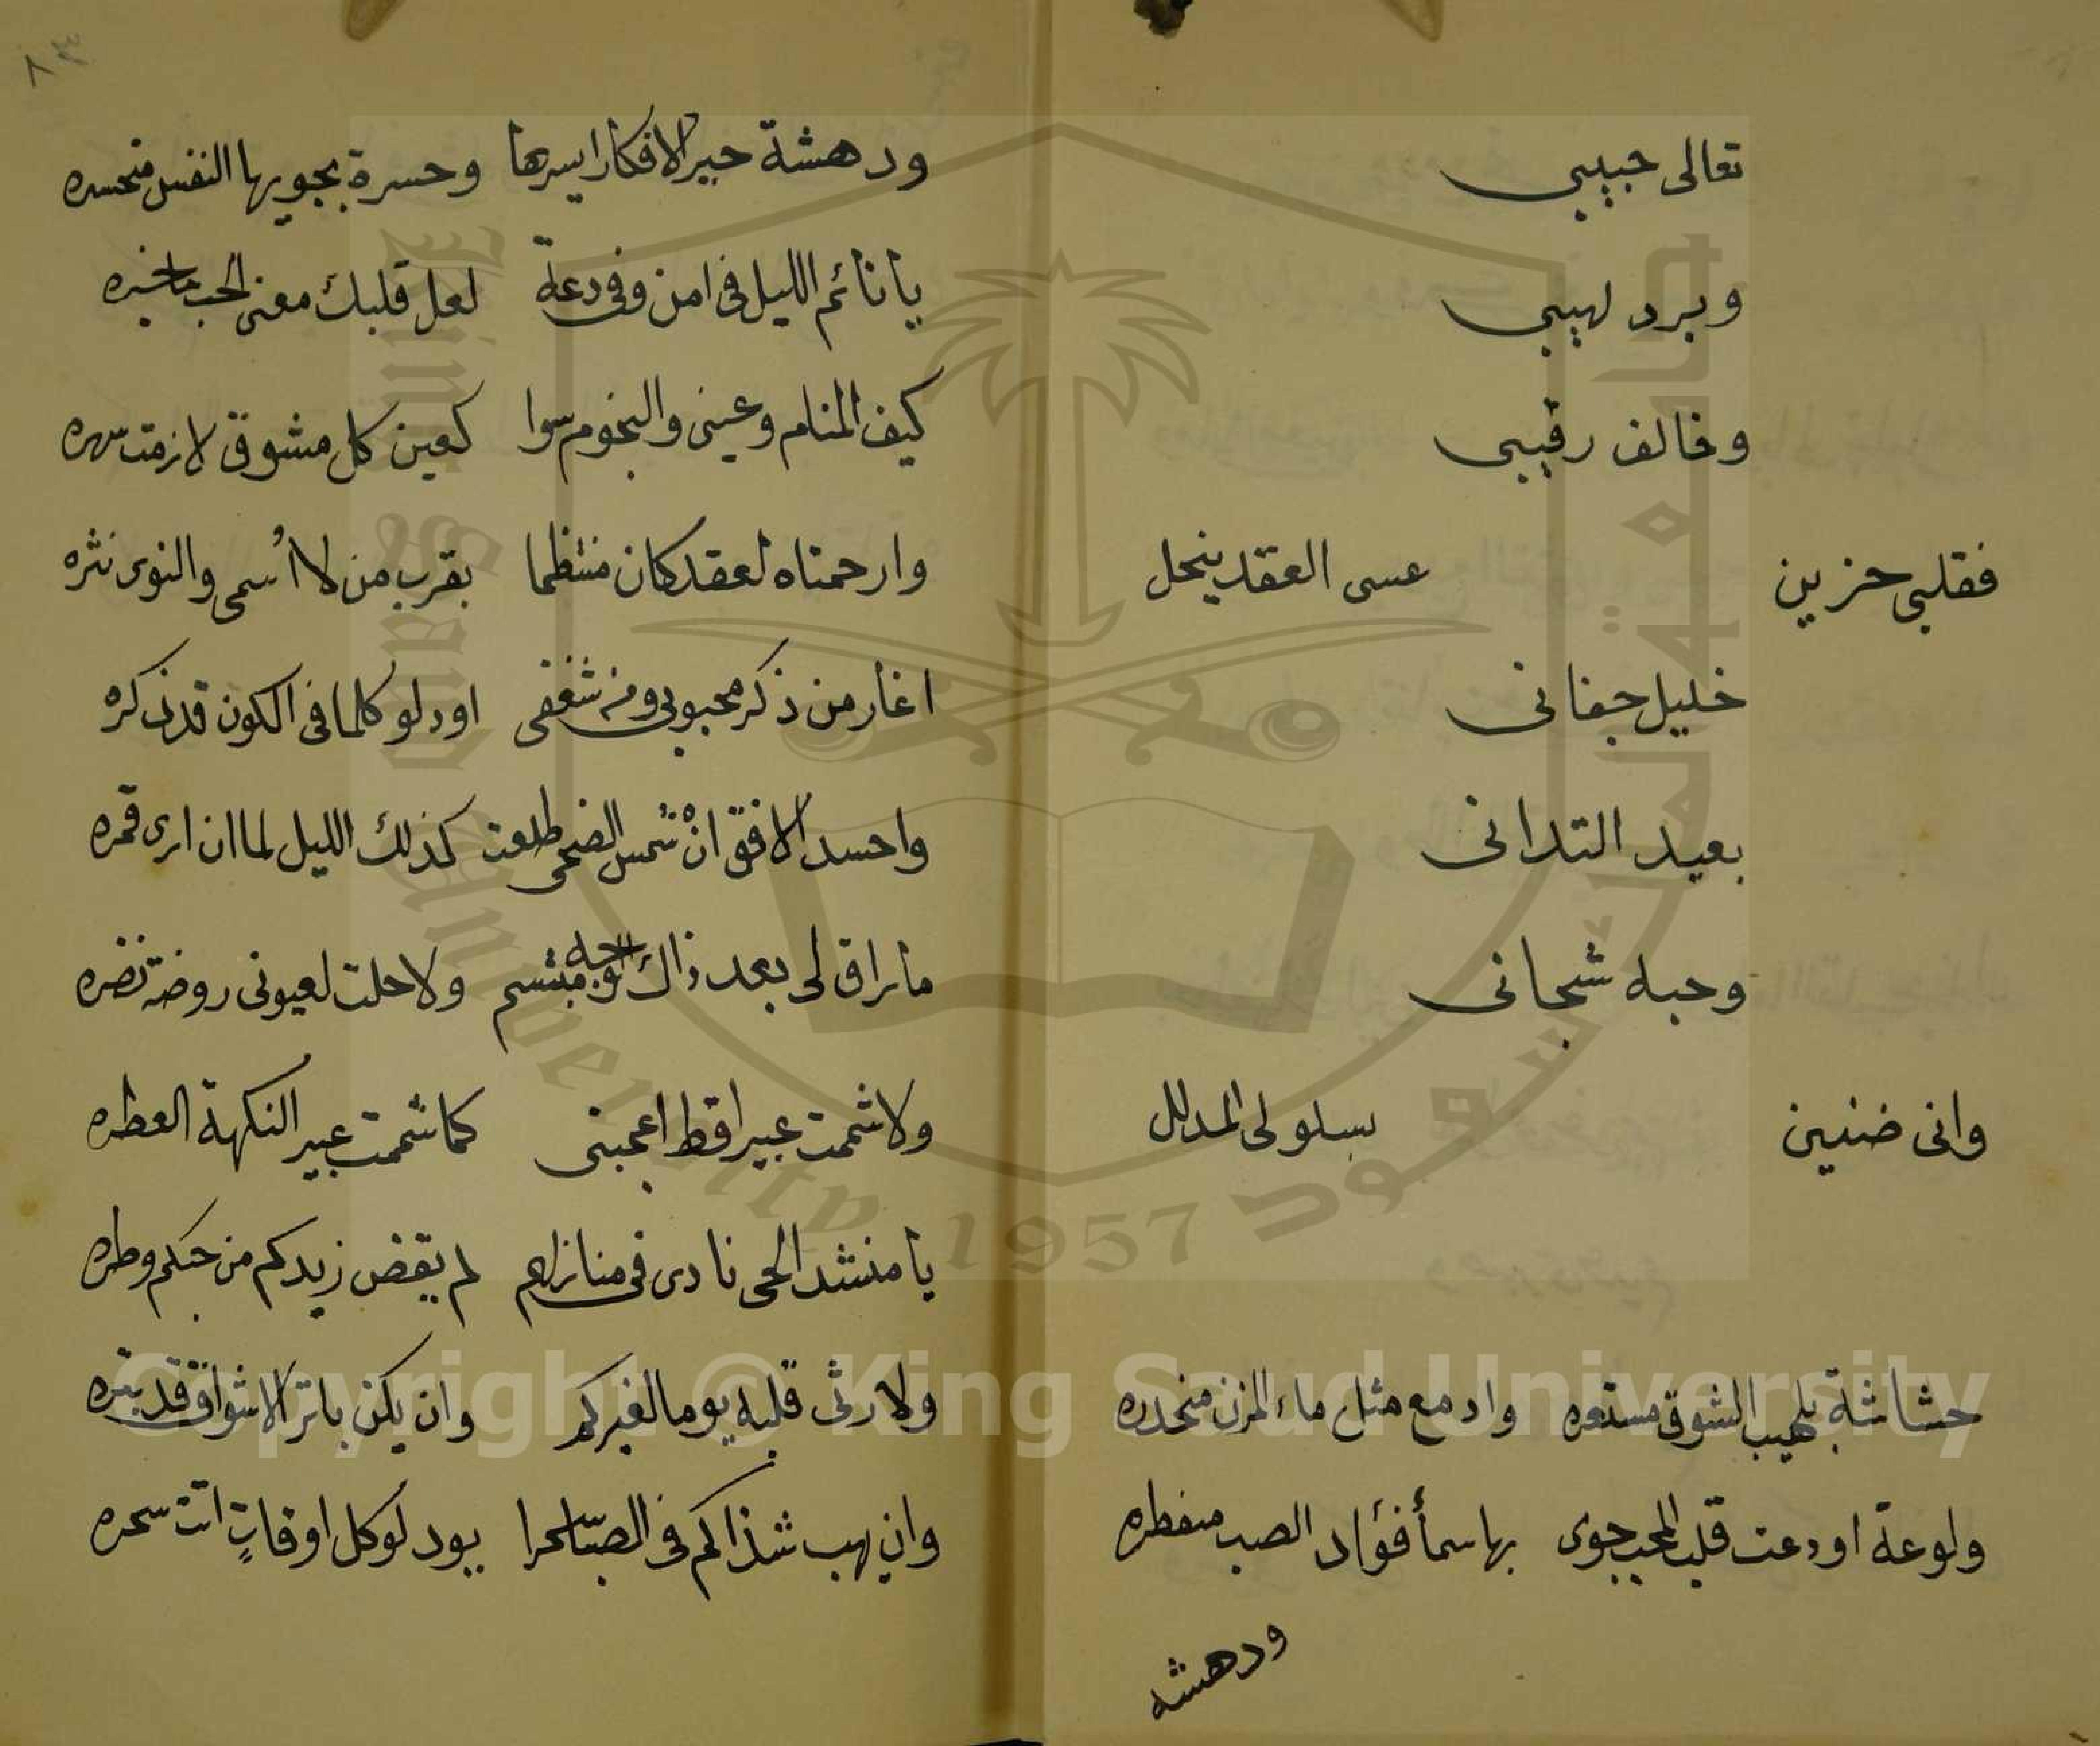 تعالى حبيبي
وبرد لهيبي
وخالف رقيبي
فقلبي حزين عسى العقد ينحل
خليل جفاني
بعيد التداني
وحبه شجاني
واني ضنين بسلولى المدلل
حشاشة بلهيب الشوق مستعره وادمع مثل ماء المزن منحدره
ولوعة اودعت قلب المحب جوى بها سمأ فؤاد الصب منفطره
ودهشه
٨٣
ودهشة حير الافكار ايسرها وحسرة بجويها النفس منحسره
يا نائم الليل في امن وفي دعة لعل قلبك معنى الحب ما خبره
كيف المنام وعيني والنجوم سوا كعين كل مشوق لازمت سهره
وارحمتاه لعقد كان منتظما بقرب من لا اُسمى والنوى نثره
اغار من ذكر محبوبي ومن شغفي اود لو كلما في الكون قد ذكره
واحسد الافق انْ شمس الضحى طلعت كذلك الليل لما ان ارى قمره
ما راق لي بعد ذاك الوجه مبتسم ولا حلت لعيوني روضة نضره
ولا شممت عبيرا قط اعجبني كما شممت عبير النكهة العطره
يا منشد الحي نادى في منازلهم لم يقض زيدكم من حبكم وطره
ولا رثى قلبه يوما لغيركم وان يكن باتر الاشواق قد بتره
وان يهب شذاكم في الصبا سحرا يود لو كل اوقاتٍ اتت سحره
King Saud University
1957
جامعة الملك سعود
Copyright © King Saud University